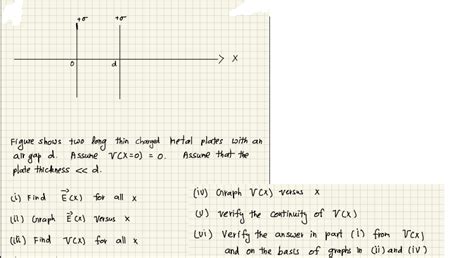 +σ +σ
0 d X
Figure shows two long thin charged metal plates with an
air gap d. Assume V(x=0) = 0. Assume that the
plate thickness << d.
(i) Find E⃗(x) for all x
(ii) Graph E⃗(x) versus x
(iii) Find V(x) for all x
(iv) Graph V(x) versus x
(v) Verify the continuity of V(x)
(vi) Verify the answer in part (i) from V(x)
and on the basis of graphs in (ii) and (iv)